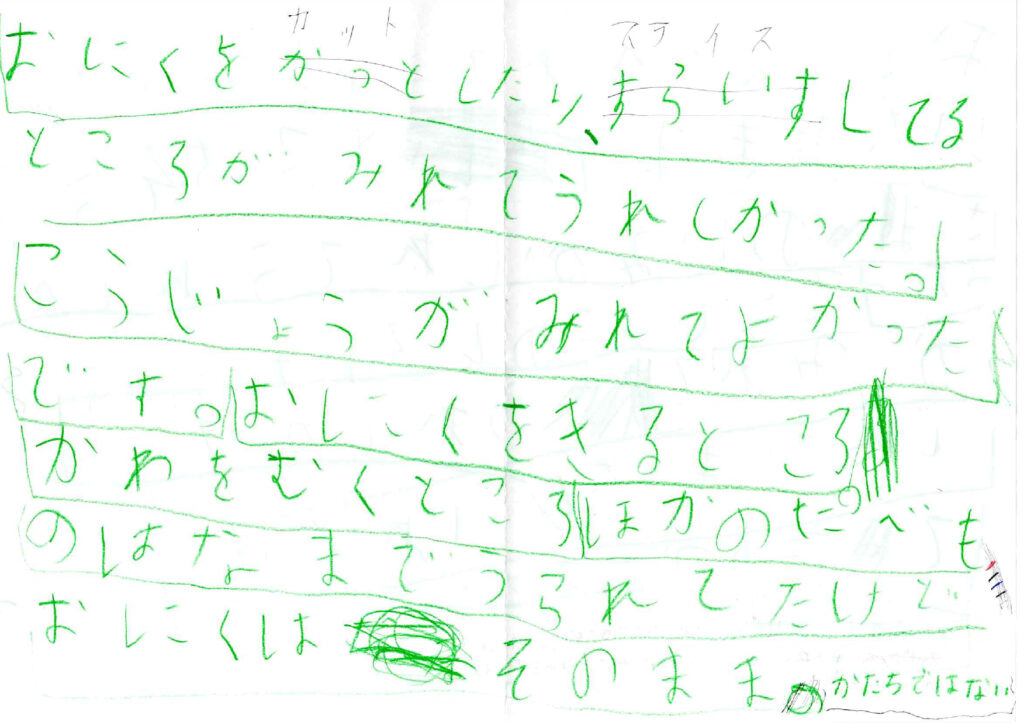 カット スライス
おにくをかっとしたり、すらいすしてる
ところがみれてうれしかった。
こうじょうがみれてよかった
です。おにくをきるところ
かわをむくところ ほかのたべも
のはなまでうられてたけど
おにくはそのまま かたちではない